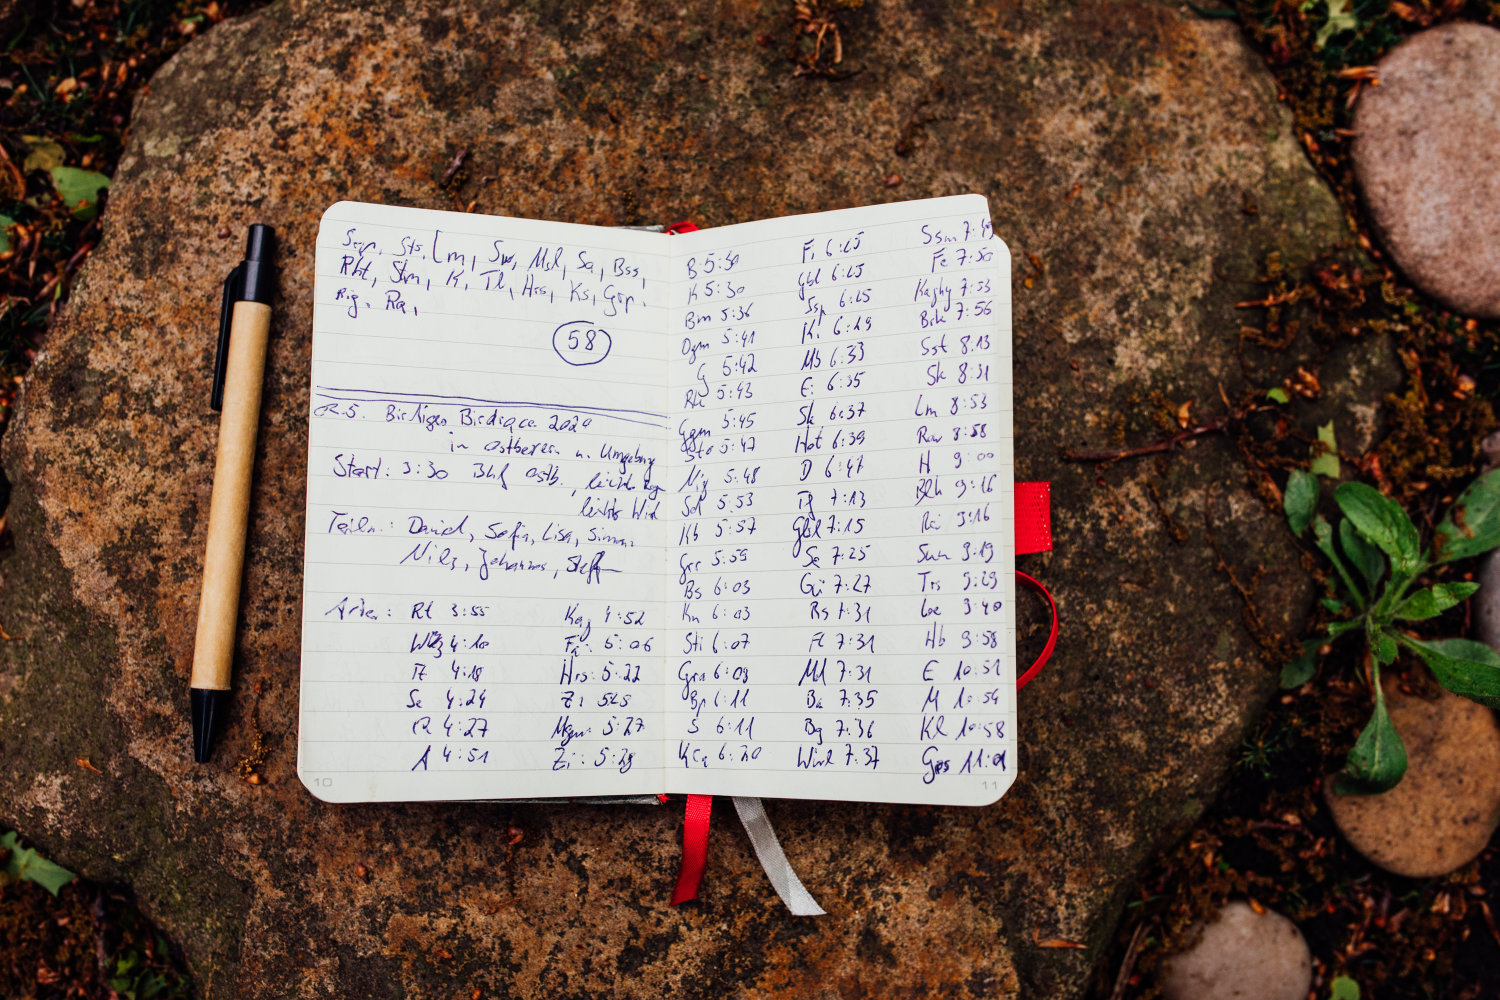 Sts, Lm, Sw, Msl, Sa, Bss,
Rht, Stm, K, Tl, Hrs, Ks, Grp.
Rig. Ra,
58
Birdrace 2020
in Ostbevern u. Umgebung
Start: 3:30 Bhf Ostb., leicht
leichter Wind
Teiln.: Daniel, Sofia, Lisa, Simon,
Nils, Johannes, Steffen
Arten: Rt 3:55 Kag 4:52
4:10 5:06
4:18 Hrs: 5:22
Se 4:24 525
R 4:27 5:27
A 4:51 Zi: 5:28
10
B 5:30 Fi 6:25 Ssm 7:49
K 5:30 Gbl 6:25 Fe 7:50
Bm 5:36 Ssp 6:25 7:53
Dgm 5:41 Ki 6:29 7:56
G 5:42 Mb 6:33 Sst 8:13
Rke 5:43 E: 6:35 Sk 8:31
Ggm 5:45 Sk 6:37 Lm 8:53
Sto 5:47 Hot 6:39 Raw 8:58
Nig 5:48 D 6:47 H 9:00
Sd 5:53 Tf 7:13 Blh 9:16
Kb 5:57 Gbl 7:15 Rei 9:16
Grr 5:59 Se 7:25 Sum 9:19
Bs 6:03 Gü 7:27 Trs 9:29
Kn 6:03 Rs 7:31 9:40
Sti 6:07 Fl 7:31 Hb 9:58
Gra 6:09 Md 7:31 E 10:51
Bp 6:11 Ba 7:35 M 10:54
S 6:11 Bg 7:36 Kl 10:58
6:20 7:37 Grs 11:01
11